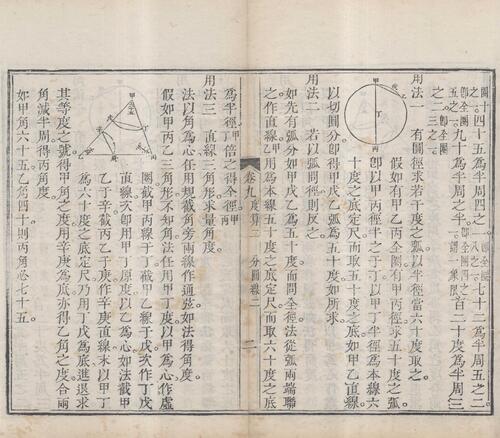 圜十四十五為半周四之一即全圜八之一七十二為半周五之二
之一即全圜五之一九十為半周之半即全圜四之一謂象限百二十度為半周三
之二即全圜三之一
用法一 有圜徑求若干度之弧以半徑當六十度取之
假如有甲乙丙全圜有甲丙徑求五十度之弧
即以甲丙徑半之于丁以甲丁半徑為本線六
十度之底定尺而取五十度之底如甲乙直線
以切圜分即得甲戊乙弧為五十度如所求
用法二 若以弧問徑則反之
如先有弧分如甲戊乙為五十度而問全徑法從弧兩端聯
之作直線乙甲用為本線五十度之底定尺而取六十度之底
卷九度算二 分圜線二 二
為半徑甲丁倍之得全徑甲丙
用法三 直線三角形求量角度
法以角為心任用規截角旁兩線作通弦如法得角度
假如甲丙乙三角形不知角法任用甲丁度以甲為心作虛
圜截甲丙線于丁截甲乙線于戊次作丁戊
直線次即用甲丁原度以乙為心如法截甲
乙于辛截丙乙于庚作辛庚直線末以甲丁
為六十度之底定尺乃用丁戊為底進退求
其等度之號得甲角之度用辛庚為底亦得乙角之度合兩
角減半周得丙角度
如甲角六十五乙角四十則丙角必七十五